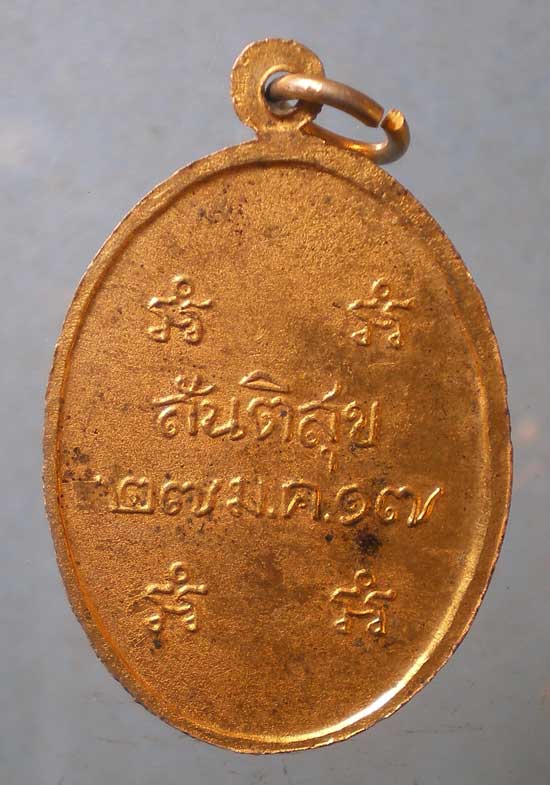 สันติสุข
๒๗ ม.ค. ๑๗